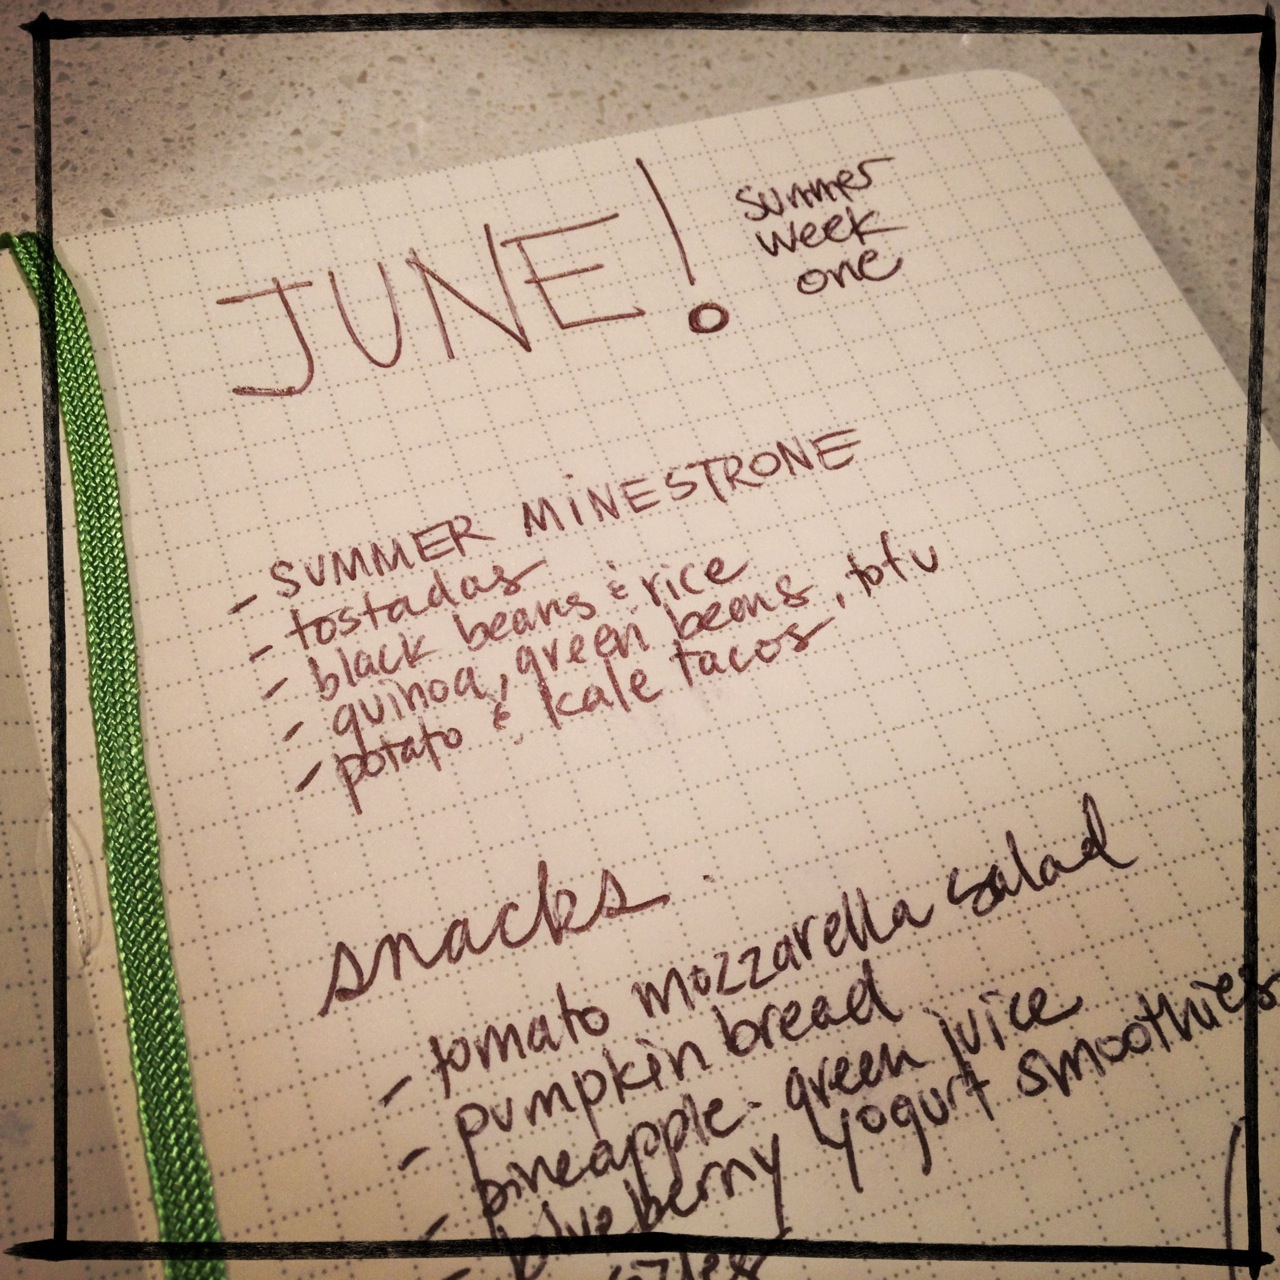 JUNE!
summer
week
one
- SUMMER MINESTRONE
- tostadas
- black beans & rice
- quinoa, green beans, tofu
- potato & kale tacos
snacks.
- tomato mozzarella salad
- pumpkin bread
- pineapple-green juice
- blueberry yogurt smoothies